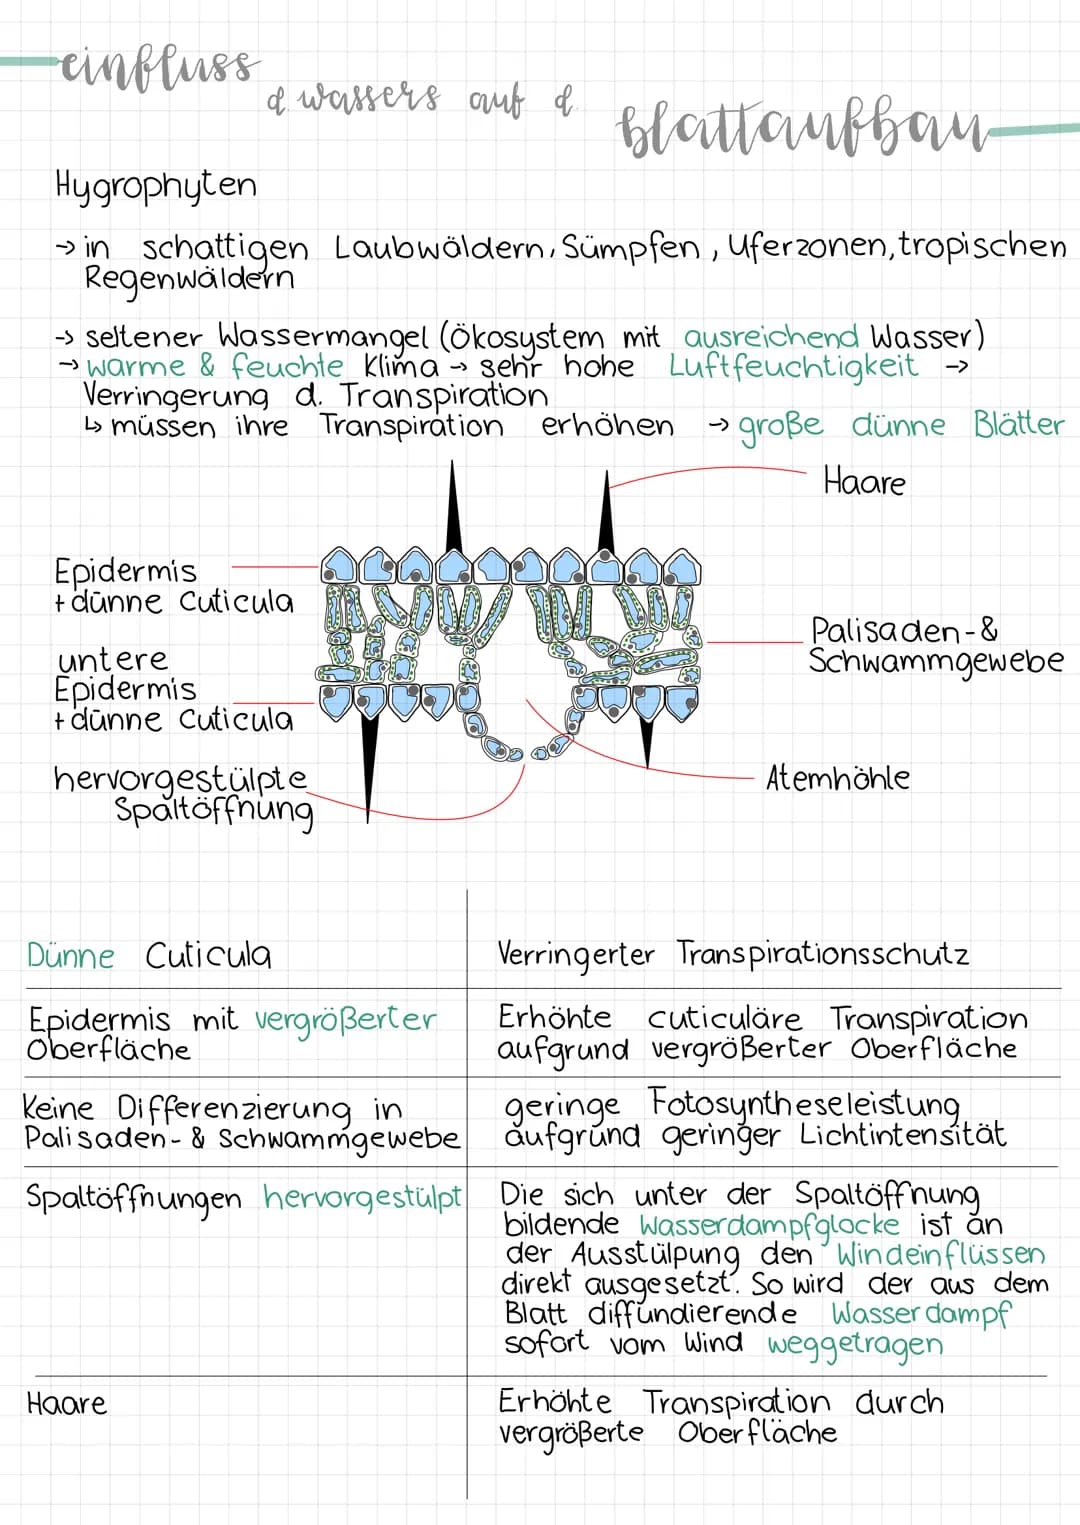 einfluss
d. wassers auf d.
blattaufbau
Hygrophyten
→ in schattigen Laubwäldern, Sümpfen, Uferzonen, tropischen
Regenwäldern
→ seltener Wassermangel (Ökosystem mit ausreichend Wasser)
→ warme & feuchte Klima → sehr hohe Luftfeuchtigkeit →
Verringerung d. Transpiration
↳ müssen ihre Transpiration erhöhen → große dünne Blätter
Haare
Epidermis
+ dünne Cuticula
Palisaden- &
Schwammgewebe
untere
Epidermis
+ dünne Cuticula
hervorgestülpte
Spaltöffnung
Atemhöhle
Dünne Cuticula
Verringerter Transpirationsschutz
Epidermis mit vergrößerter
Oberfläche
Erhöhte cuticuläre Transpiration
aufgrund vergrößerter Oberfläche
Keine Differenzierung in
Palisaden- & Schwammgewebe
geringe Fotosyntheseleistung
aufgrund geringer Lichtintensität
Spaltöffnungen hervorgestülpt
Die sich unter der Spaltöffnung
bildende Wasserdampfglocke ist an
der Ausstülpung den Windeinflüssen
direkt ausgesetzt. So wird der aus dem
Blatt diffundierende Wasserdampf
sofort vom Wind weggetragen
Haare
Erhöhte Transpiration durch
vergrößerte Oberfläche